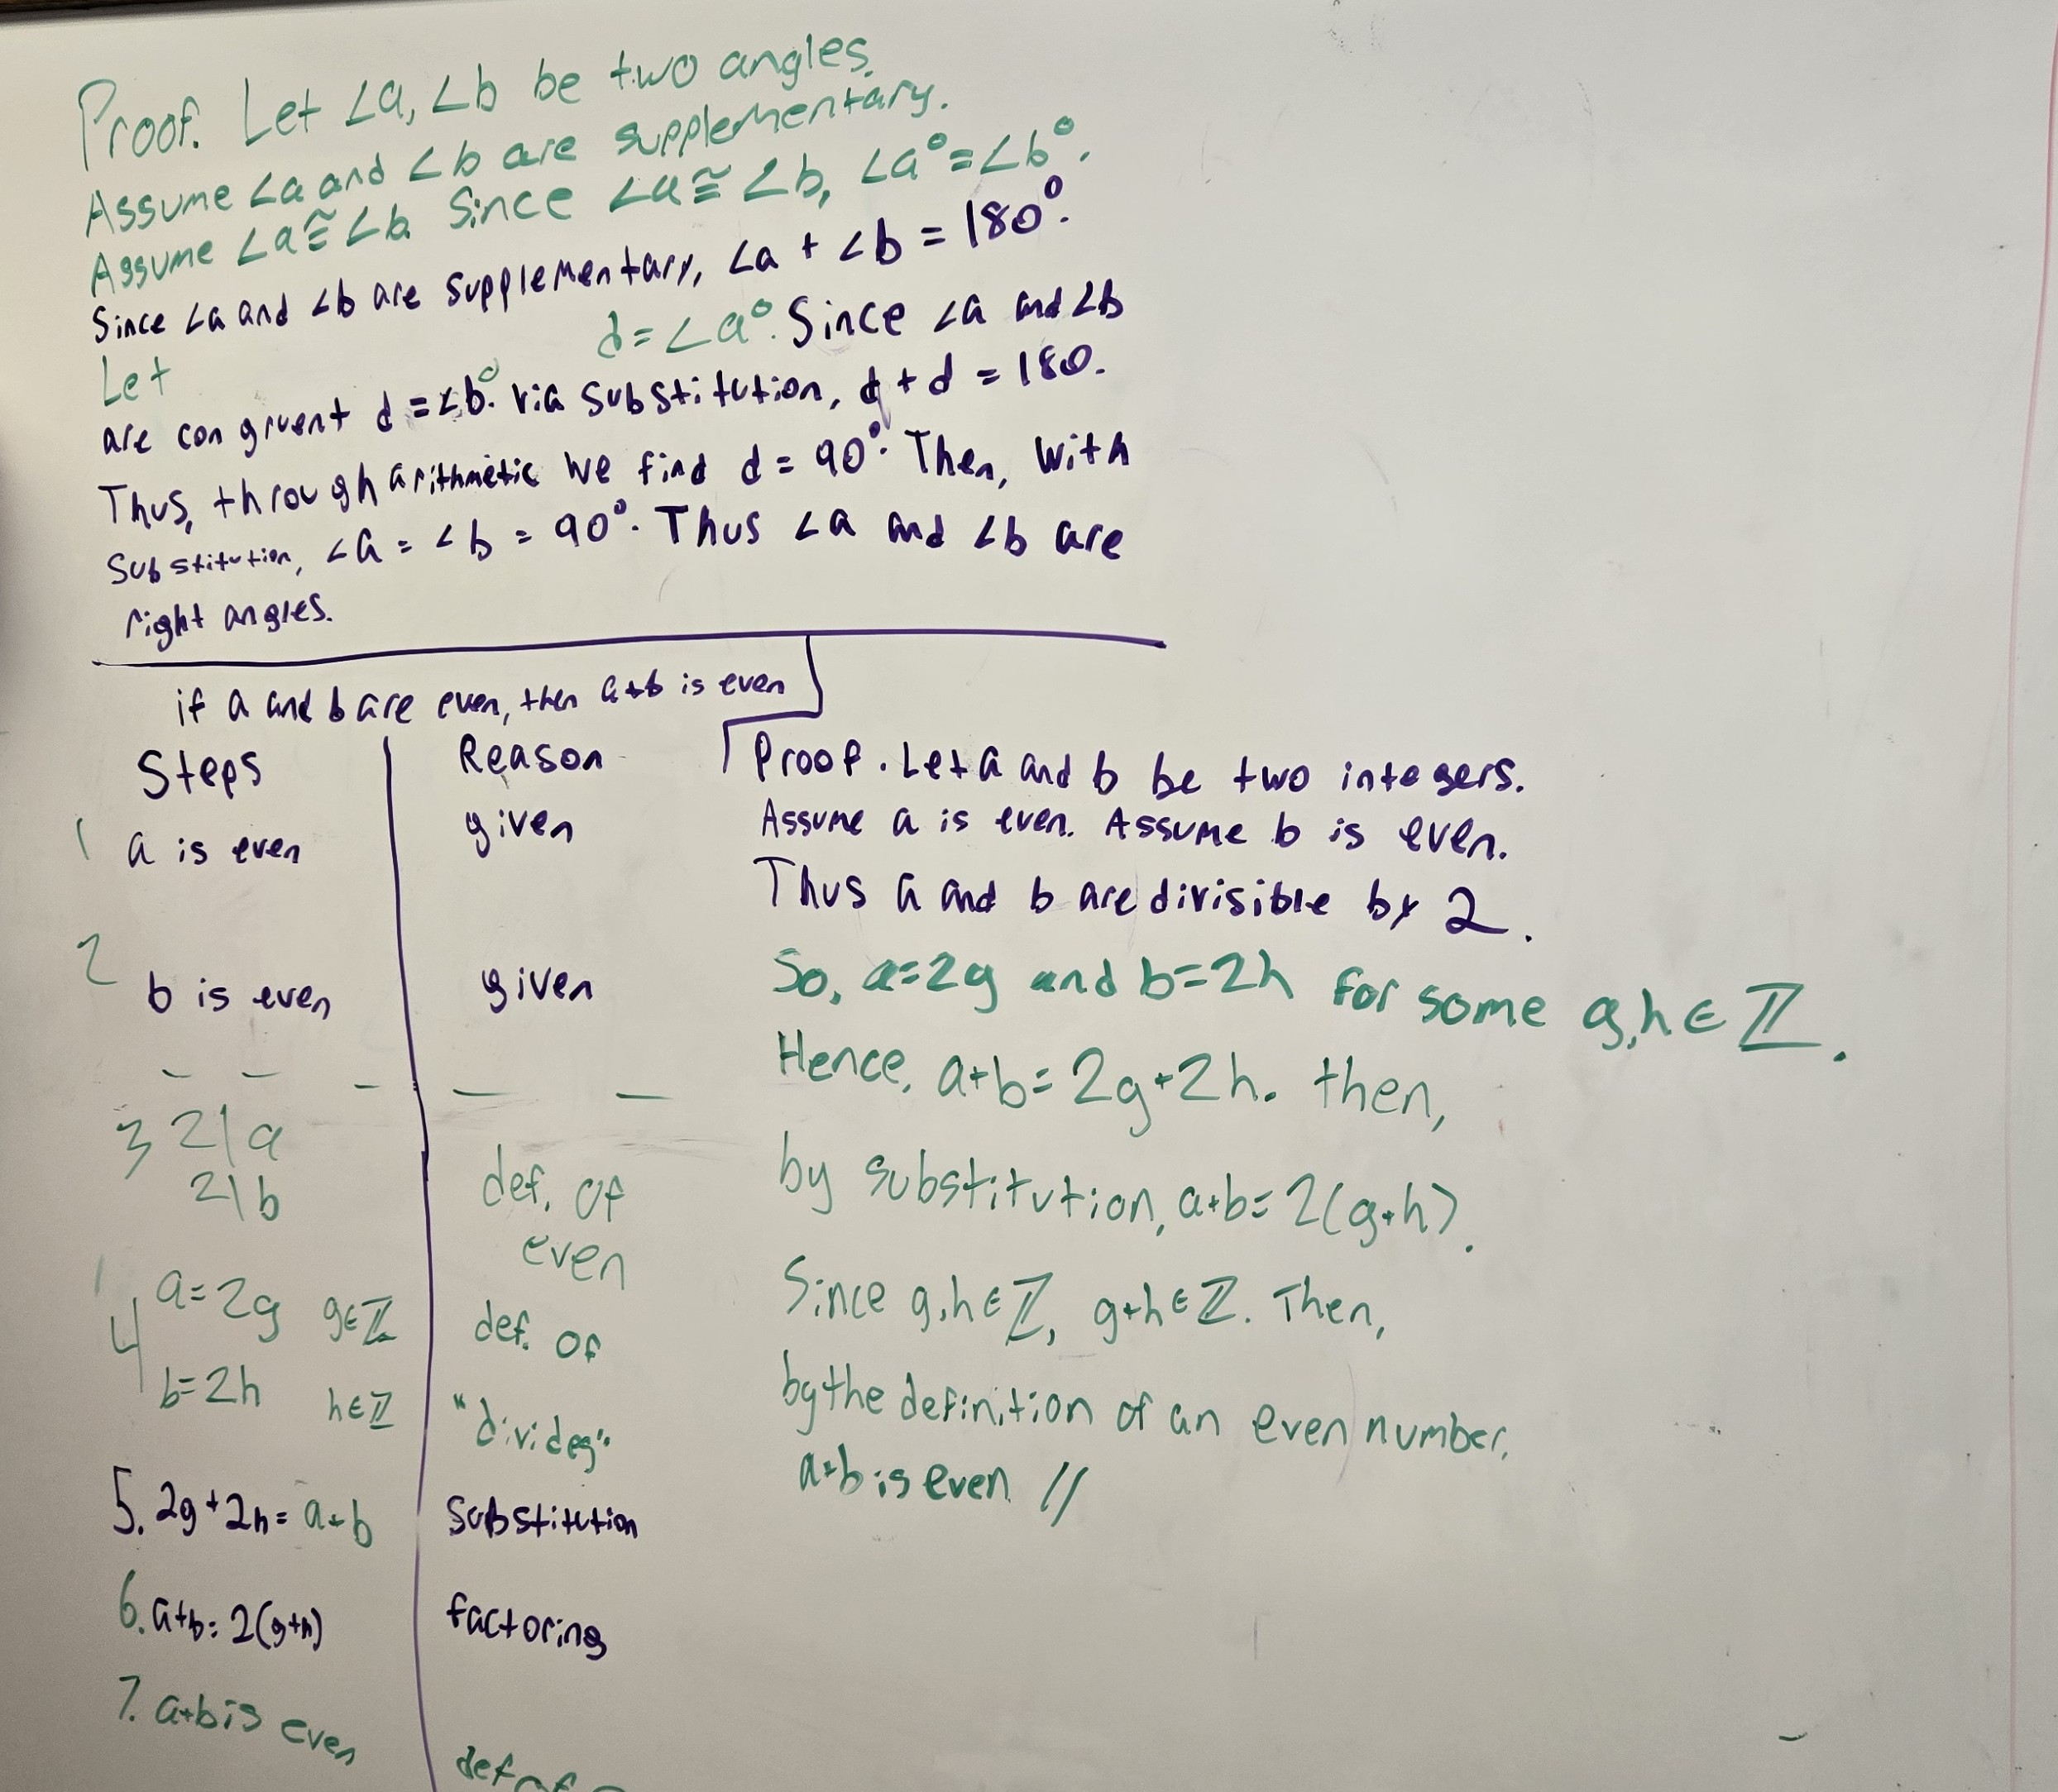 Proof. Let ∠a, ∠b be two angles.
Assume ∠a and ∠b are supplementary.
Assume ∠a≅∠b. Since ∠a≅∠b, ∠a°=∠b°.
Since ∠a and ∠b are supplementary, ∠a + ∠b = 180°.
Let d=∠a°. Since ∠a and ∠b
are congruent d=∠b°. Via substitution, d+d = 180.
Thus, through arithmetic we find d = 90°. Then, with
substitution, ∠a = ∠b = 90°. Thus ∠a and ∠b are
right angles.
if a and b are even, then a+b is even
Steps Reason
1 a is even given
2 b is even given
3 2|a
2|b def. of
even
4 a=2g g∈ℤ def. of
b=2h h∈ℤ "divides".
5. 2g+2h= a+b substitution
6. a+b= 2(g+h) factoring
7. a+b is even
def of
Proof. Let a and b be two integers.
Assume a is even. Assume b is even.
Thus a and b are divisible by 2.
So, a=2g and b=2h for some g,h∈ℤ.
Hence, a+b=2g+2h. then,
by substitution, a+b=2(g+h).
Since g,h∈ℤ, g+h∈ℤ. Then,
by the definition of an even number,
a+b is even //